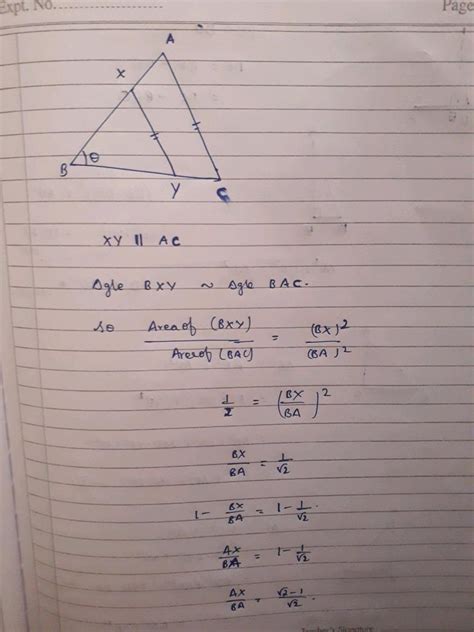 Expt. No.
Page
A
X
B θ
Y
C
XY || AC
Δgle BXY ~ Δgle BAC.
so Area of (BXY) / Area of (BAC) = (BX)² / (BA)²
1/2 = (BX/BA)²
BX/BA = 1/√2
1 - BX/BA = 1 - 1/√2
AX/BA = 1 - 1/√2
AX/BA = √2-1/√2.
Teacher's Signature